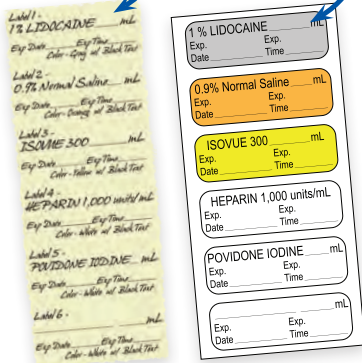 Label 1 -
1% LIDOCAINE ____ mL
Exp Date____ Exp Time____
Color - Gray w/ Black Text
Label 2 -
0.9% Normal Saline ____ mL
Exp Date____ Exp Time____
Color - Orange w/ Black Text
Label 3 -
ISOVUE 300 ____ mL
Exp Date____ Exp Time____
Color - Yellow w/ Black Text
Label 4 -
HEPARIN 1,000 units/mL
Exp Date____ Exp Time____
Color - White w/ Black Text
Label 5 -
POVIDONE IODINE__ mL
Exp Date____ Exp Time____
Color - White w/ Black Text
Label 6 -
____ mL
Exp Date____ Exp Time____
Color - White w/ Black Text
1 % LIDOCAINE ____ mL
Exp. Exp.
Date____ Time____
0.9% Normal Saline____mL
Exp. Exp.
Date____ Time____
ISOVUE 300____mL
Exp. Exp.
Date____ Time____
HEPARIN 1,000 units/mL
Exp. Exp.
Date____ Time____
POVIDONE IODINE____mL
Exp. Exp.
Date____ Time____
____ mL
Exp. Exp.
Date____ Time____